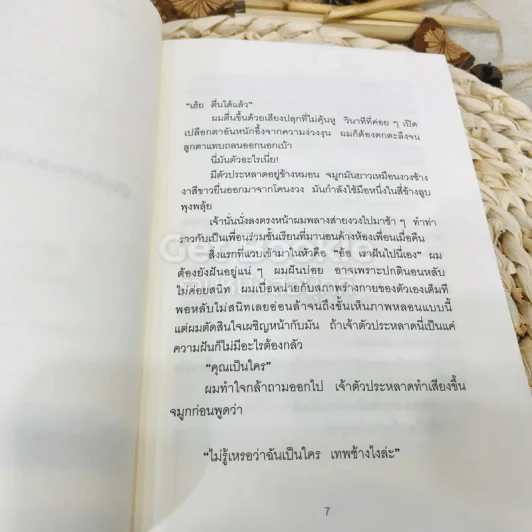 “เฮ้ย ตื่นได้แล้ว”
ผมตื่นขึ้นด้วยเสียงปลุกที่ไม่คุ้นหู วินาทีที่ค่อย ๆ เปิด
เปลือกตาอันหนักอึ้งจากความง่วงงุน ผมก็ต้องตกตะลึงจน
ลูกตาแทบถลนออกนอกเบ้า
นี่มันตัวอะไรเนี่ย!
มีตัวประหลาดอยู่ข้างหมอน จมูกมันยาวเหมือนงวงช้าง
งาสีขาวยื่นออกมาจากโคนงวง มันกำลังใช้มือหนึ่งในสี่ข้างลูบ
พุงพลุ้ย
เจ้านั่นนั่งลงตรงหน้าผมพลางส่ายงวงไปมาช้า ๆ ทำท่า
ราวกับเป็นเพื่อนร่วมชั้นเรียนที่มานอนค้างห้องเพื่อนเมื่อคืน
สิ่งแรกที่แวบเข้ามาในหัวคือ “อ้อ เราฝันไปนี่เอง” ผม
ต้องยังฝันอยู่แน่ ๆ ผมฝันบ่อย อาจเพราะปกตินอนหลับ
ไม่ค่อยสนิท ผมเบื่อหน่ายกับสภาพร่างกายของตัวเองเต็มที
พอหลับไม่สนิทเลยอ่อนล้าจนถึงขั้นเห็นภาพหลอนแบบนี้
แต่ผมตัดสินใจเผชิญหน้ากับมัน ถ้าเจ้าตัวประหลาดนี่เป็นแค่
ความฝันก็ไม่มีอะไรต้องกลัว
“คุณเป็นใคร”
ผมทำใจกล้าถามออกไป เจ้าตัวประหลาดทำเสียงขึ้น
จมูกก่อนพูดว่า
“ไม่รู้เหรอว่าฉันเป็นใคร เทพช้างไงล่ะ”
7